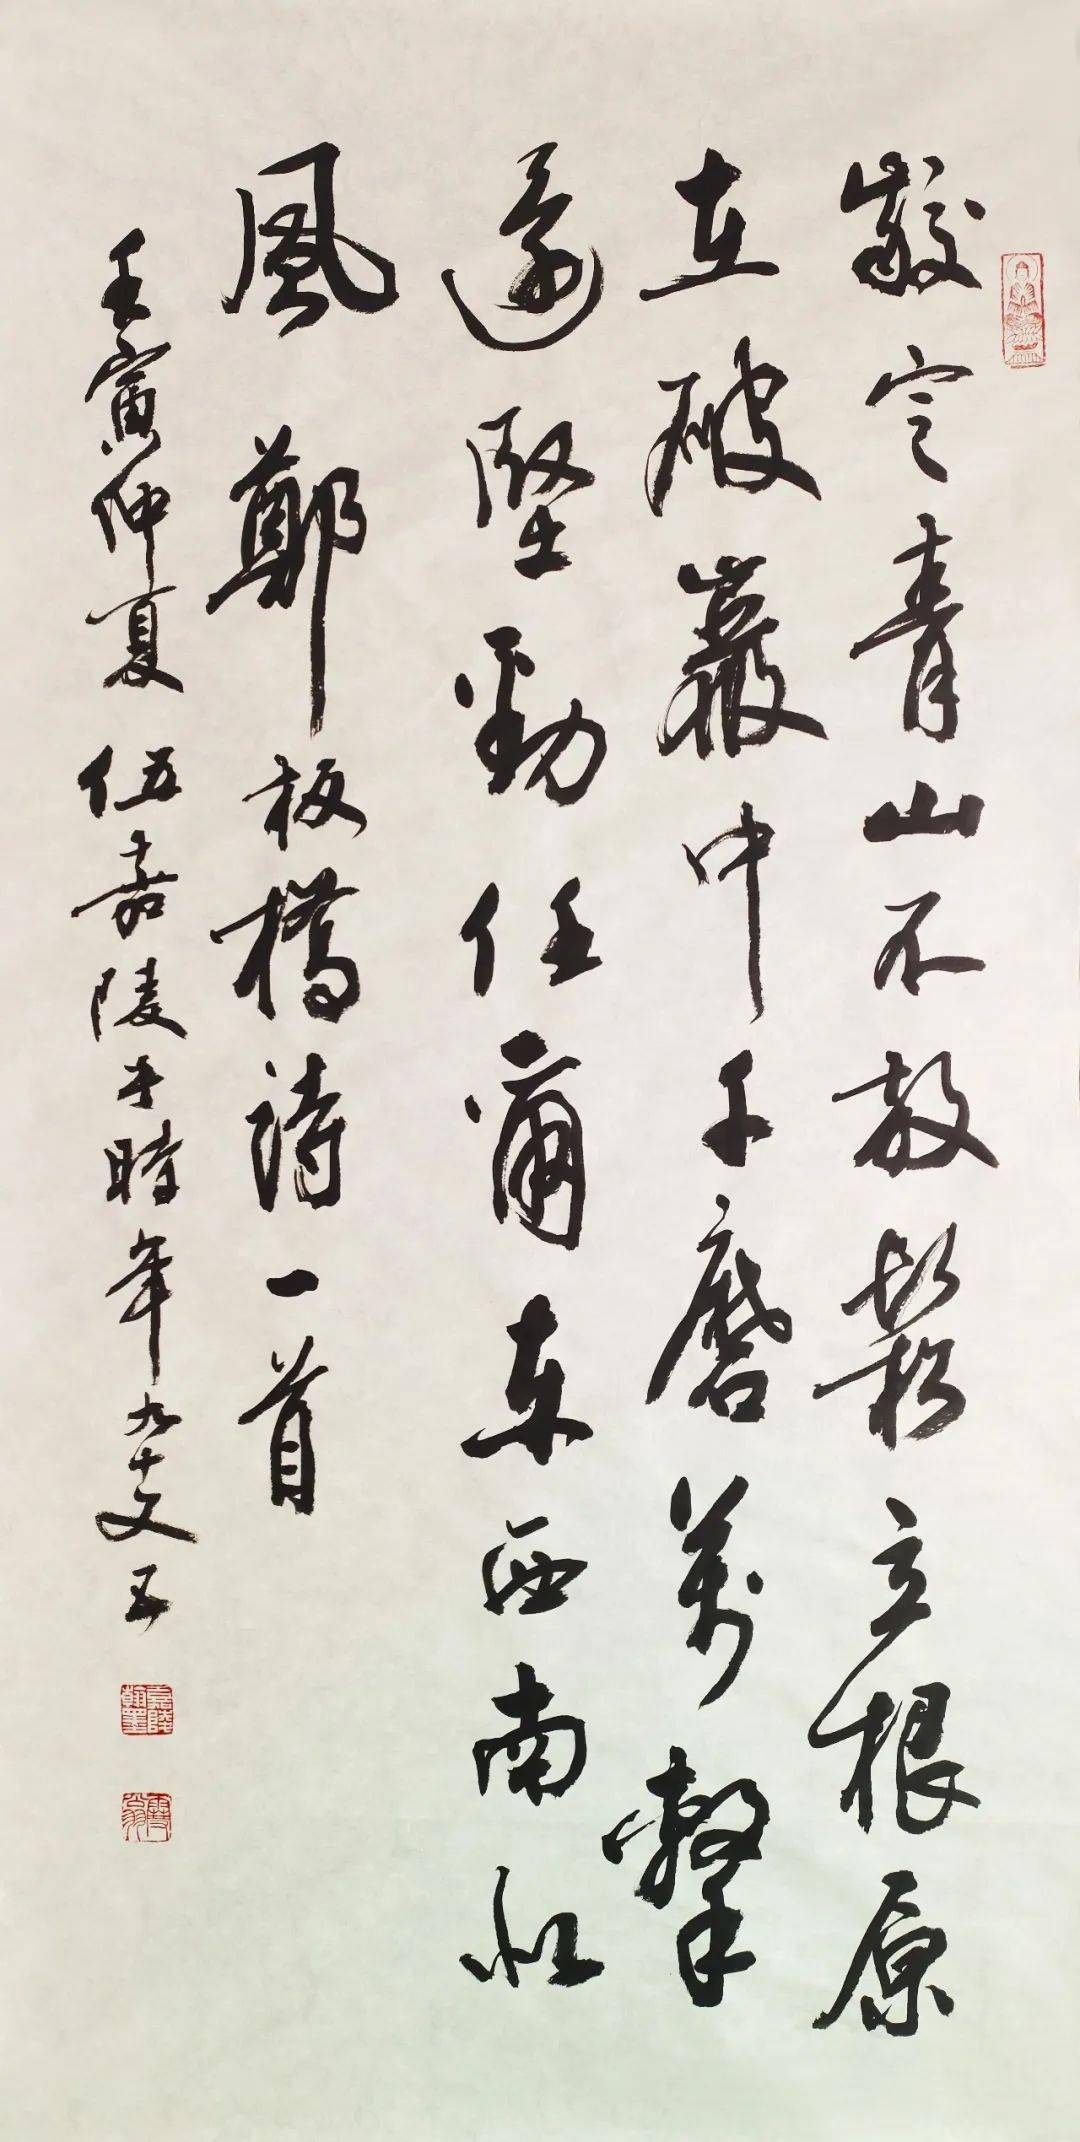 齩定青山不放鬆立根原
在破巖中千磨萬擊
還堅勁任爾東西南北
風 鄭板橋詩一首
壬寅仲夏 伍嘉陵于時年九十又五
嘉陵翰墨